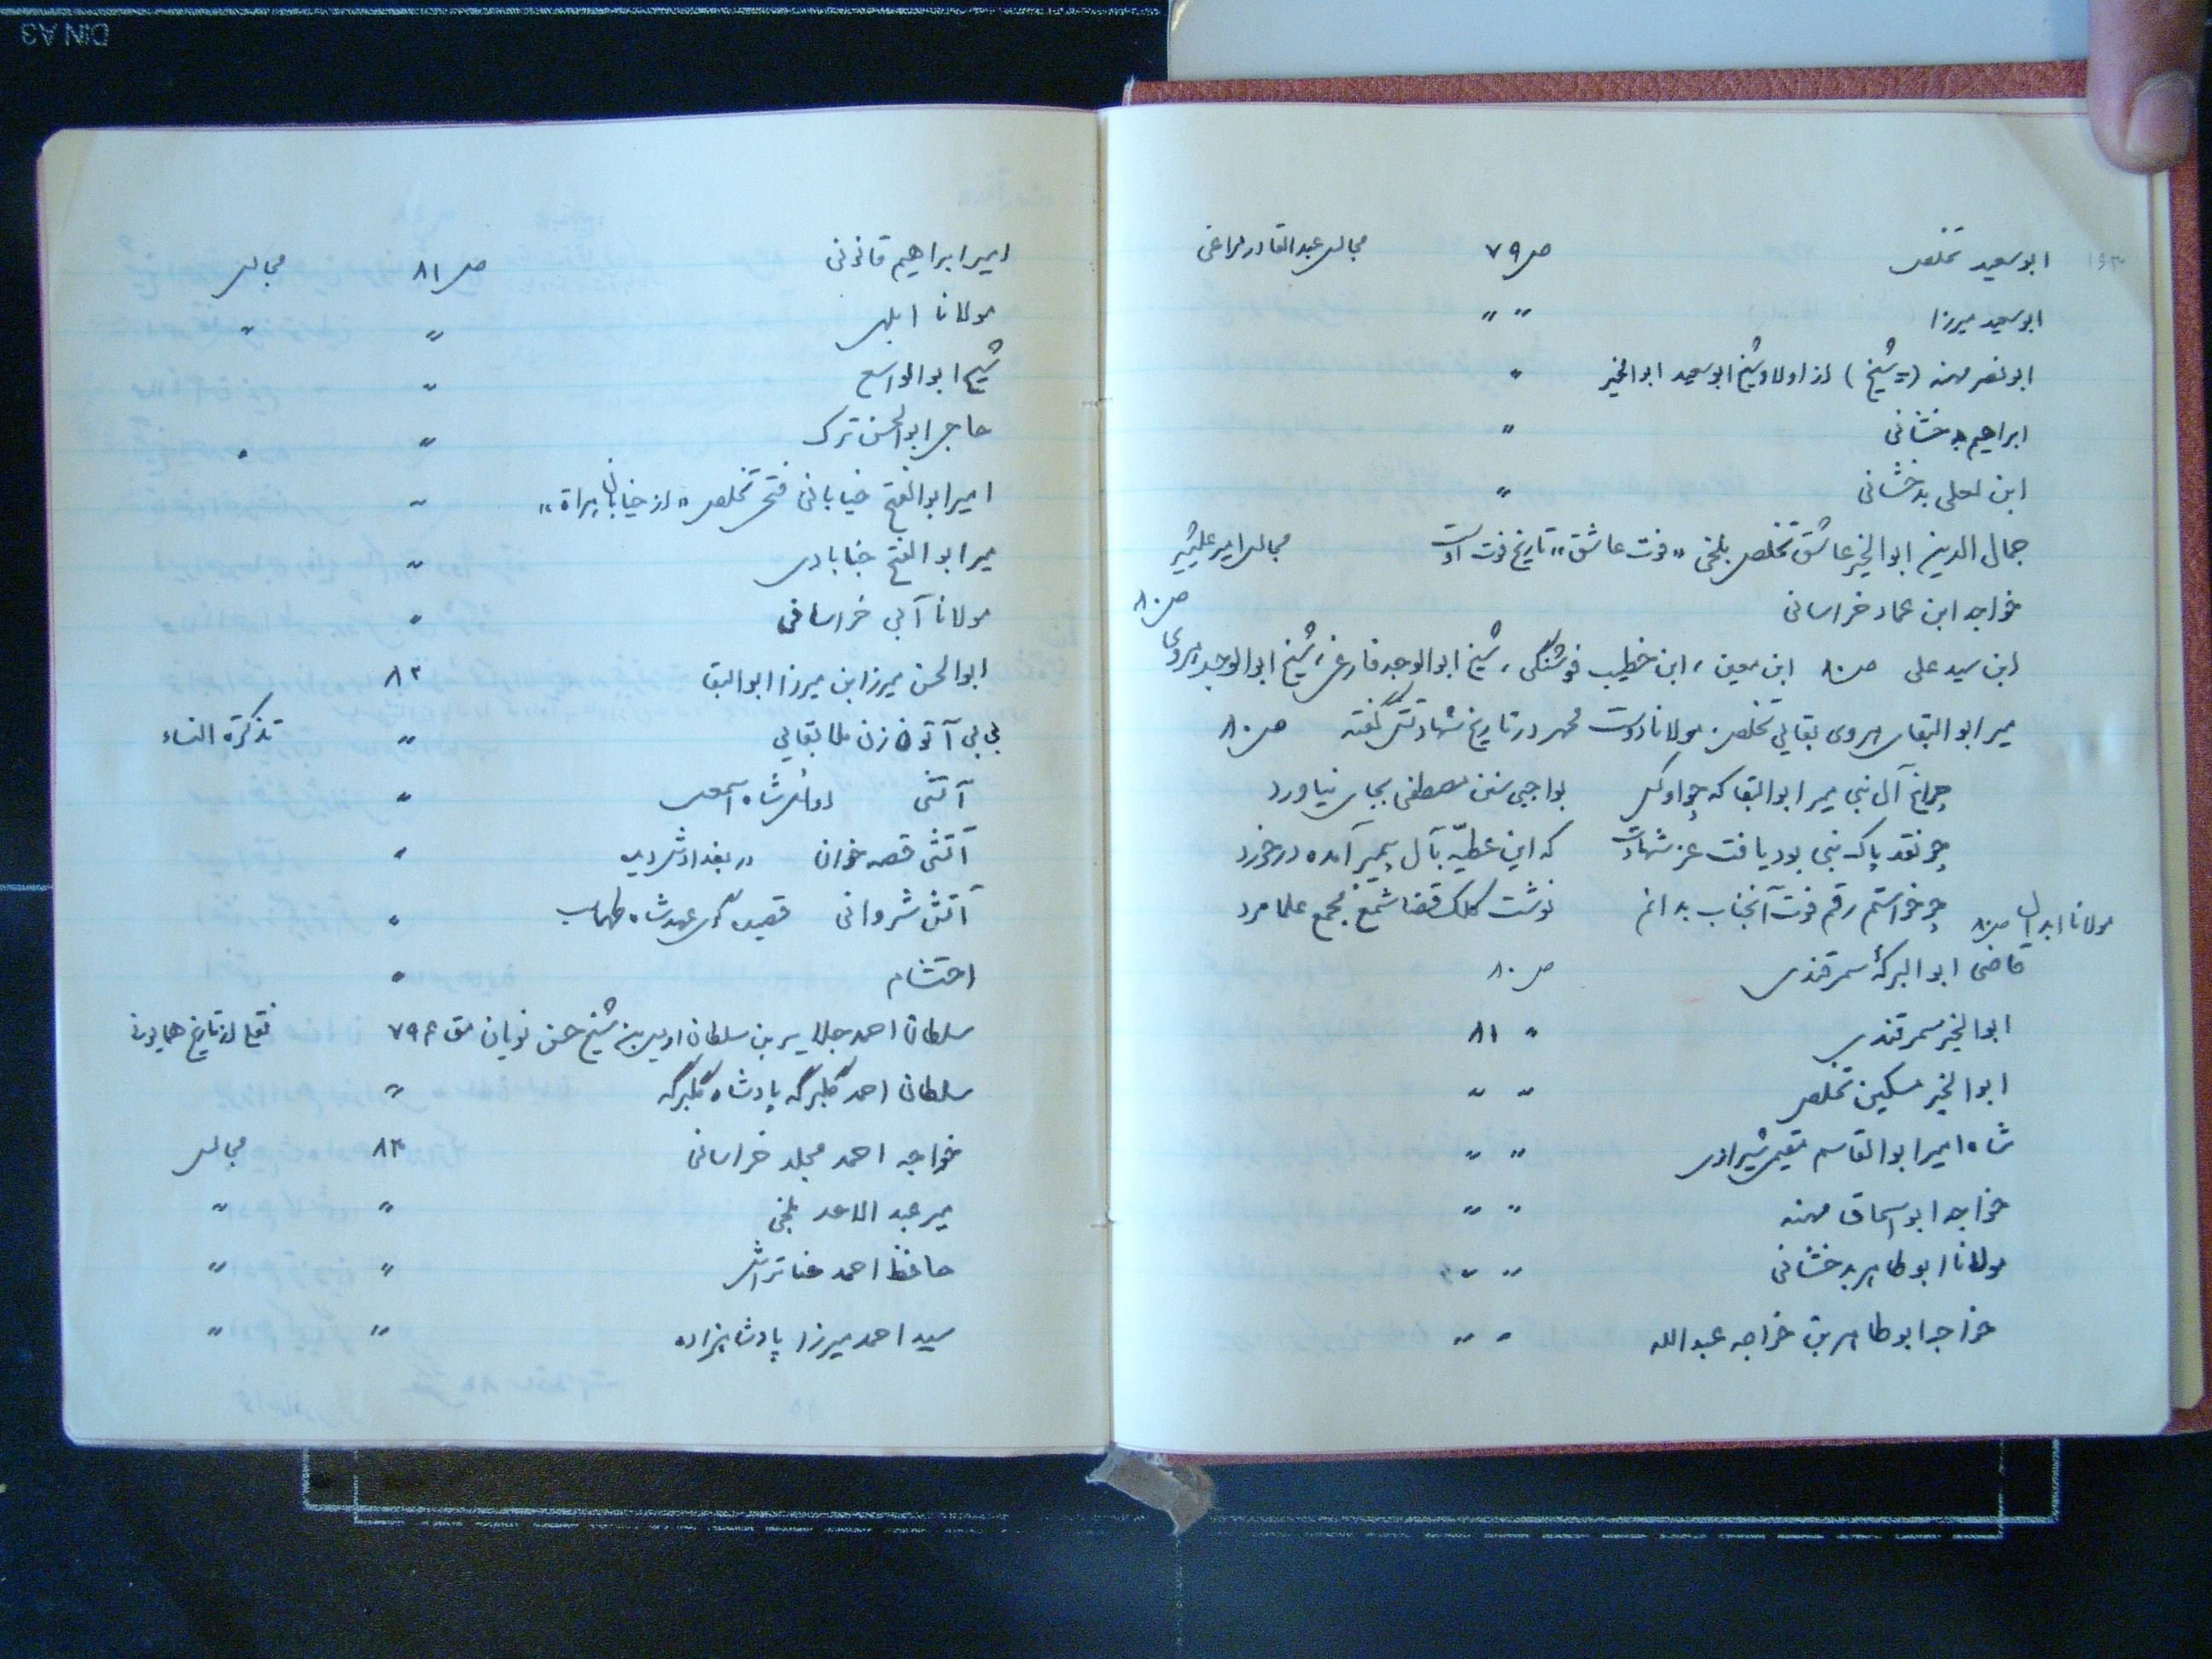 ابوسعید تخلص ص ۷۹ مجالس عبدالقادر مراغی
ابوسعید میرزا " "
ابونصر مهنه (= شیخ) از اولاد شیخ ابوسعید ابوالخیر "
ابراهیم بدخشانی "
ابن لعلی بدخشانی "
جمال الدین ابوالخیر عاشق تخلص بلخی «فوت عاشق» تاریخ فوت اوست مجالس امیر علیشیر
خواجه ابن عماد خراسانی ص ۸۰
ابن سید علی ص ۸۰ ابن معین، ابن خطیب فوشنگی، شیخ ابوالوجد فارغی، شیخ ابوالوجد هروی
میر ابوالبقاء هروی بقایی تخلص. مولانا دوست محمد در تاریخ شهادتش گفته ص ۸۰
چراغ آل نبی میر ابوالبقا که چو او کس بواجبی سنن مصطفی بجای نیاورد
چو نقد پاک نبی بود یافت عز شهادت که این عطیّه بآل پیمبر آمده درخورد
چو خواستم رقم فوت آنجناب بدانم نوشت کلک قضا شمع مجمع علما مرد
مولانا ص ۸۰
قاضی ابوالبرکهٔ سمرقندی ص ۸۰
ابوالخیر سمرقندی " ۸۱
ابوالخیر مسکین تخلص " "
شاه امیر ابوالقاسم مقیم شیرازی " "
خواجه ابو اسحاق مهنه " "
مولانا ابوطاهر بدخشانی " "
خواجه ابوطاهر بن خواجه عبدالله " "
امیر ابراهیم قانونی ص ۸۱ مجالس
مولانا ابلهی " "
شیخ ابوالواسع "
حاجی ابوالحسن ترک " "
امیر ابوالفتح خیابانی فتحی تخلص «از خیابان هراة» "
میر ابوالفتح جنابادی "
مولانا آبی خراسانی "
ابوالحسن میرزا ابن میرزا ابوالبقا ۸۲
بی بی آتون زن ملا بقایی " تذکرة النساء
آتشی شاه اسمعیل "
آتشی قصه خوان در بغداد "
آتشی شروانی عهد شاه طهماسب "
احتشام "
سلطان احمد جلایر بن سلطان اویس بن شیخ حسن نویان ۷۹۴ نقل از تاریخ همایون
سلطان احمد گلبرگه پادشاه گلبرگه "
خواجه احمد مجلد خراسانی ۸۳ مجالس
میر عبد الاحد بلخی " "
حافظ احمد حناتراش " "
سید احمد میرزا پادشاهزاده " "